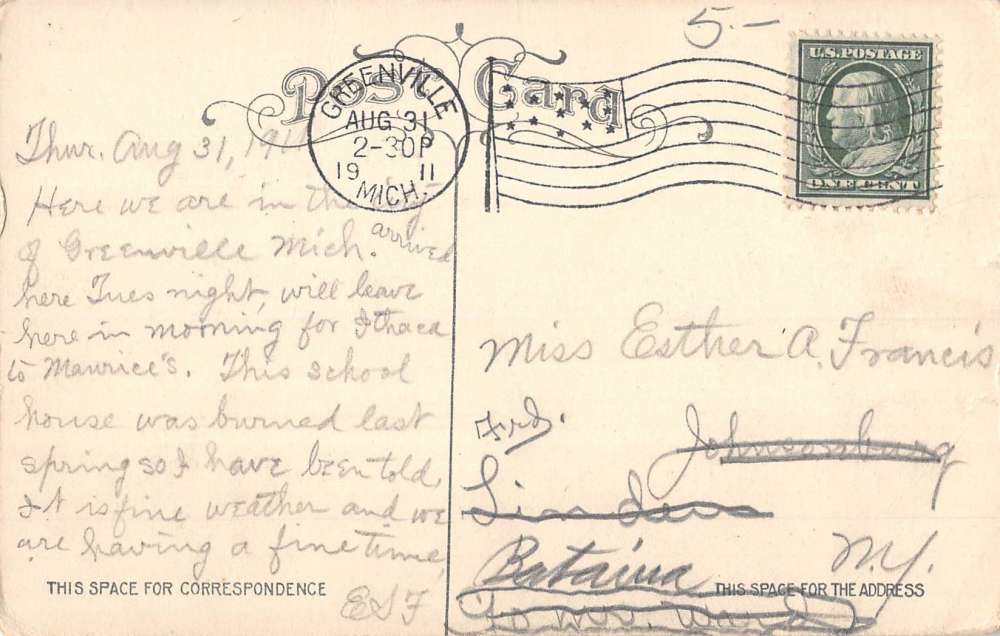 5.-
Post Card
GREENVILLE
AUG 31
2-30P
19 11
MICH.
U.S. POSTAGE
ONE CENT
Thur. Aug 31, 191
Here we are in the
of Greenville Mich. arrived
here Tues night, will leave
here in morning for Ithaca
to Maurice's. This school
house was burned last
spring so I have been told,
It is fine weather and we
are having a fine time,
ESF
THIS SPACE FOR CORRESPONDENCE
Miss Esther A. Francis
Frd.
Johnsonburg
Linden
Bataina
N.Y.
THIS SPACE FOR THE ADDRESS
Ward